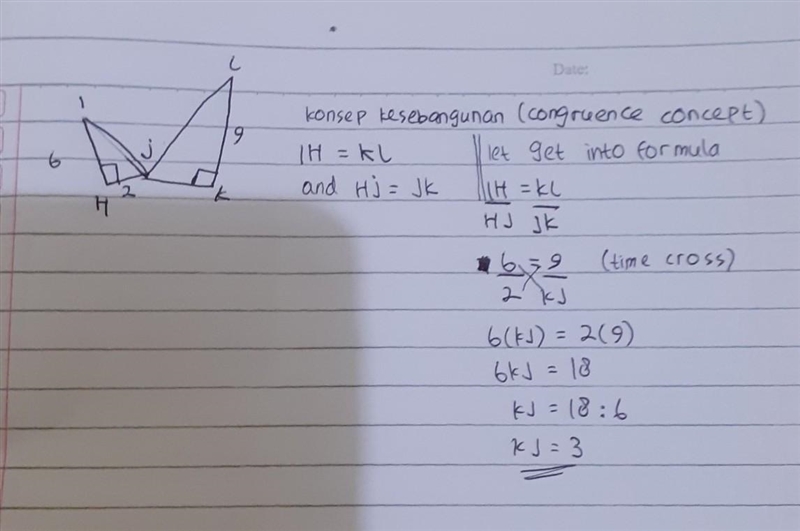 Date:
L
I
6
J
9
H
2
K
konsep kesebangunan (congruence concept)
IH = KL
and HJ = JK
let get into formula
IH = KL
HJ JK
6 = 9 (time cross)
2 KJ
6(KJ) = 2(9)
6KJ = 18
KJ = 18 : 6
KJ = 3